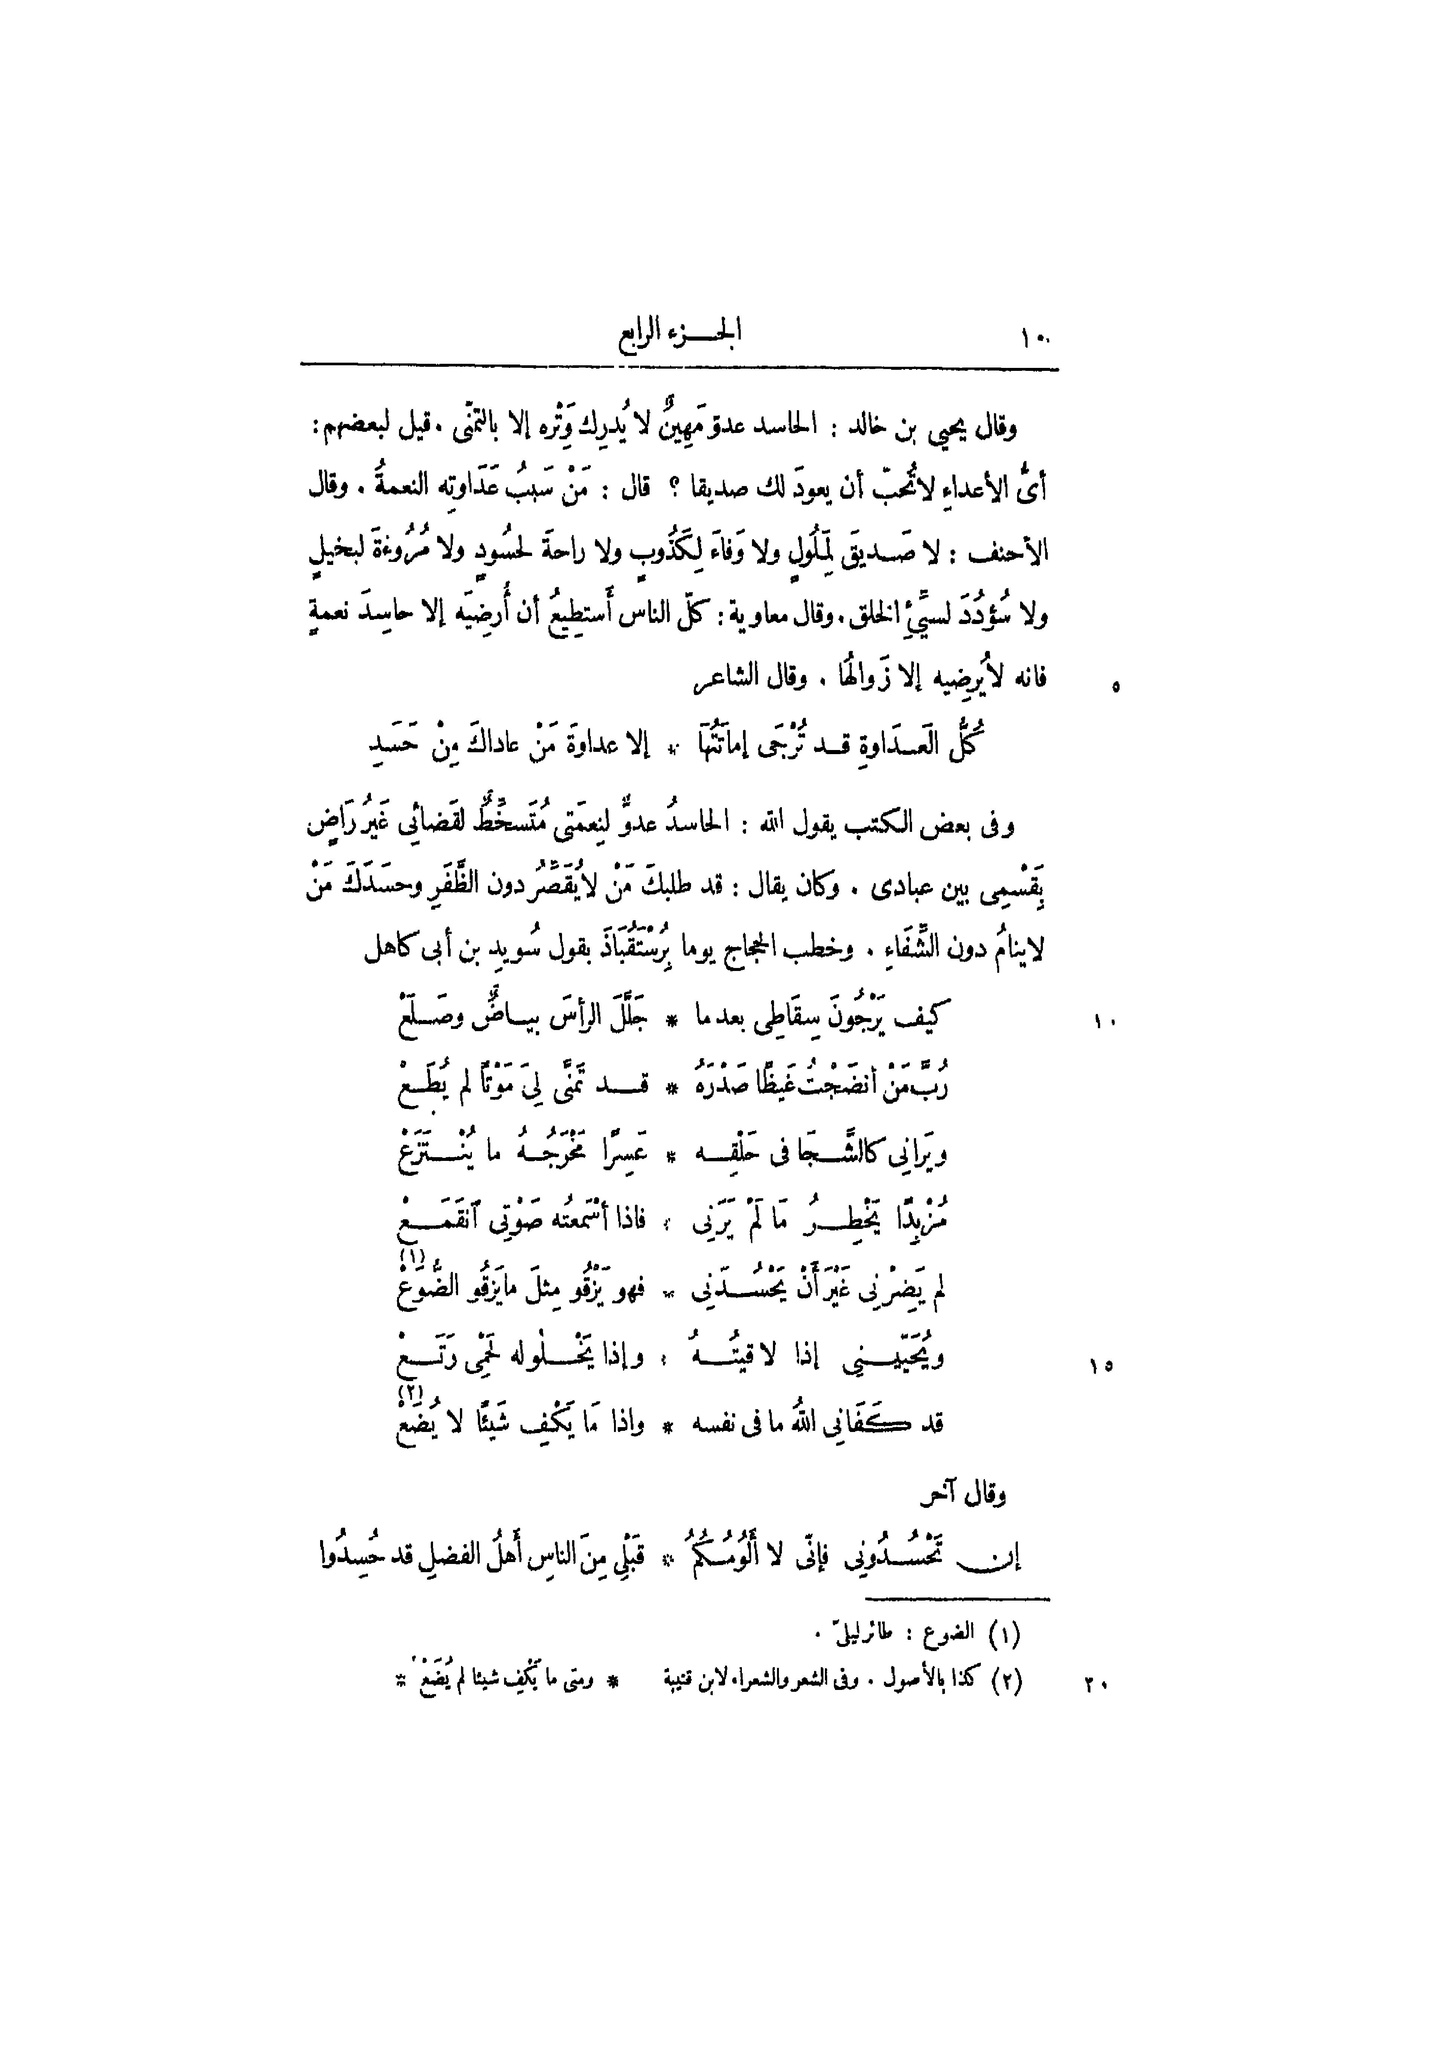 ١٠ الجزء الرابع
وقال يحيى بن خالد : الحاسد عدوّ مَهِينٌ لا يُدرِك وَِتْره إلا بالتمنّى . قيل لبعضهم :
أىُّ الأعداءِ لا تُحبّ أن يعودَ لك صديقا ؟ قال : مَنْ سَببُ عَدَاوتِه النعمةُ . وقال
الأحنف : لا صَديقَ لِمَلُولٍ ولا وَفاءَ لِكَذُوبٍ ولا راحةَ لحسُودٍ ولا مُرُوءةَ لبخيلٍ
ولا سُؤدُدَ لسيِّئِ الخلق . وقال معاوية : كلّ الناس أَستطِيعُ أن أُرضِيَه إلا حاسِدَ نعمةٍ
فانه لا يُرضِيه إلا زَوالهُا . وقال الشاعر ٥
كُلُّ العَدَاوةِ قد تُرْجَى إماتَتُهَا * إلا عداوةَ مَنْ عاداكَ مِنْ حَسَدِ
وفى بعض الكتب يقول الله : الحاسدُ عدوٌّ لِنِعمَتى مُتَسخِّطٌ لقَضائِي غَيرُ رَاضٍ
بِقَسْمِى بين عبادى . وكان يقال : قد طلبكَ مَنْ لا يُقَصِّرُ دون الظَّفَرِ وحسَدَكَ مَنْ
لا ينامُ دون الشِّفَاءِ . وخطب الحجاج يوما بِرُسْتَقُبَاذَ بقول سُويدِ بن أبى كاهل
كيف يَرْجُونَ سِقَاطِى بعد ما * جَلَّلَ الرأسَ بياضٌ وصَلَعْ ١٠
رُبَّ مَنْ أنضَجْتُ غَيظًا صَدْرَهُ * قد تَمَنَّى لِىَ مَوْتًا لم يُطَعْ
ويَرانِى كالشَّجَا فى حَلْقِه * عَسِرًا مَخْرَجُهُ ما يُنْتَزَعْ
مُزْبِدًا يَخْطِرُ مَا لَمْ يَرَنِى * فاذا أسْمَعتُه صَوْتِى ٱنقَمَعْ
لم يَضِرْنِى غَيْرَ أَنْ يَحْسُدَنِى * فهو يَزْقُو مِثلَ ما يَزقُو الضُّوَعْ (١)
ويُحَيّينِي إذا لاقيتُهُ * وإذا يَخْلُو له لَحْمِى رَتَعْ ١٥
قد كَفَانِى اللهُ ما فى نفسه * واذا مَا يَكْفِ شَيئًا لا يُضَعْ (٢)
وقال آخر
إن تَحْسُدُونِى فإنّى لا أَلُومُكُمُ * قَبْلِى مِنَ الناسِ أَهلُ الفضلِ قد حُسِدُوا
(١) الضوع : طائر ليلىّ .
(٢) كذا بالأصول . وفى الشعر والشعراء لابن قتيبة * ومتى ما يَكْفِ شيئا لم يُضَعْ * ٢٠